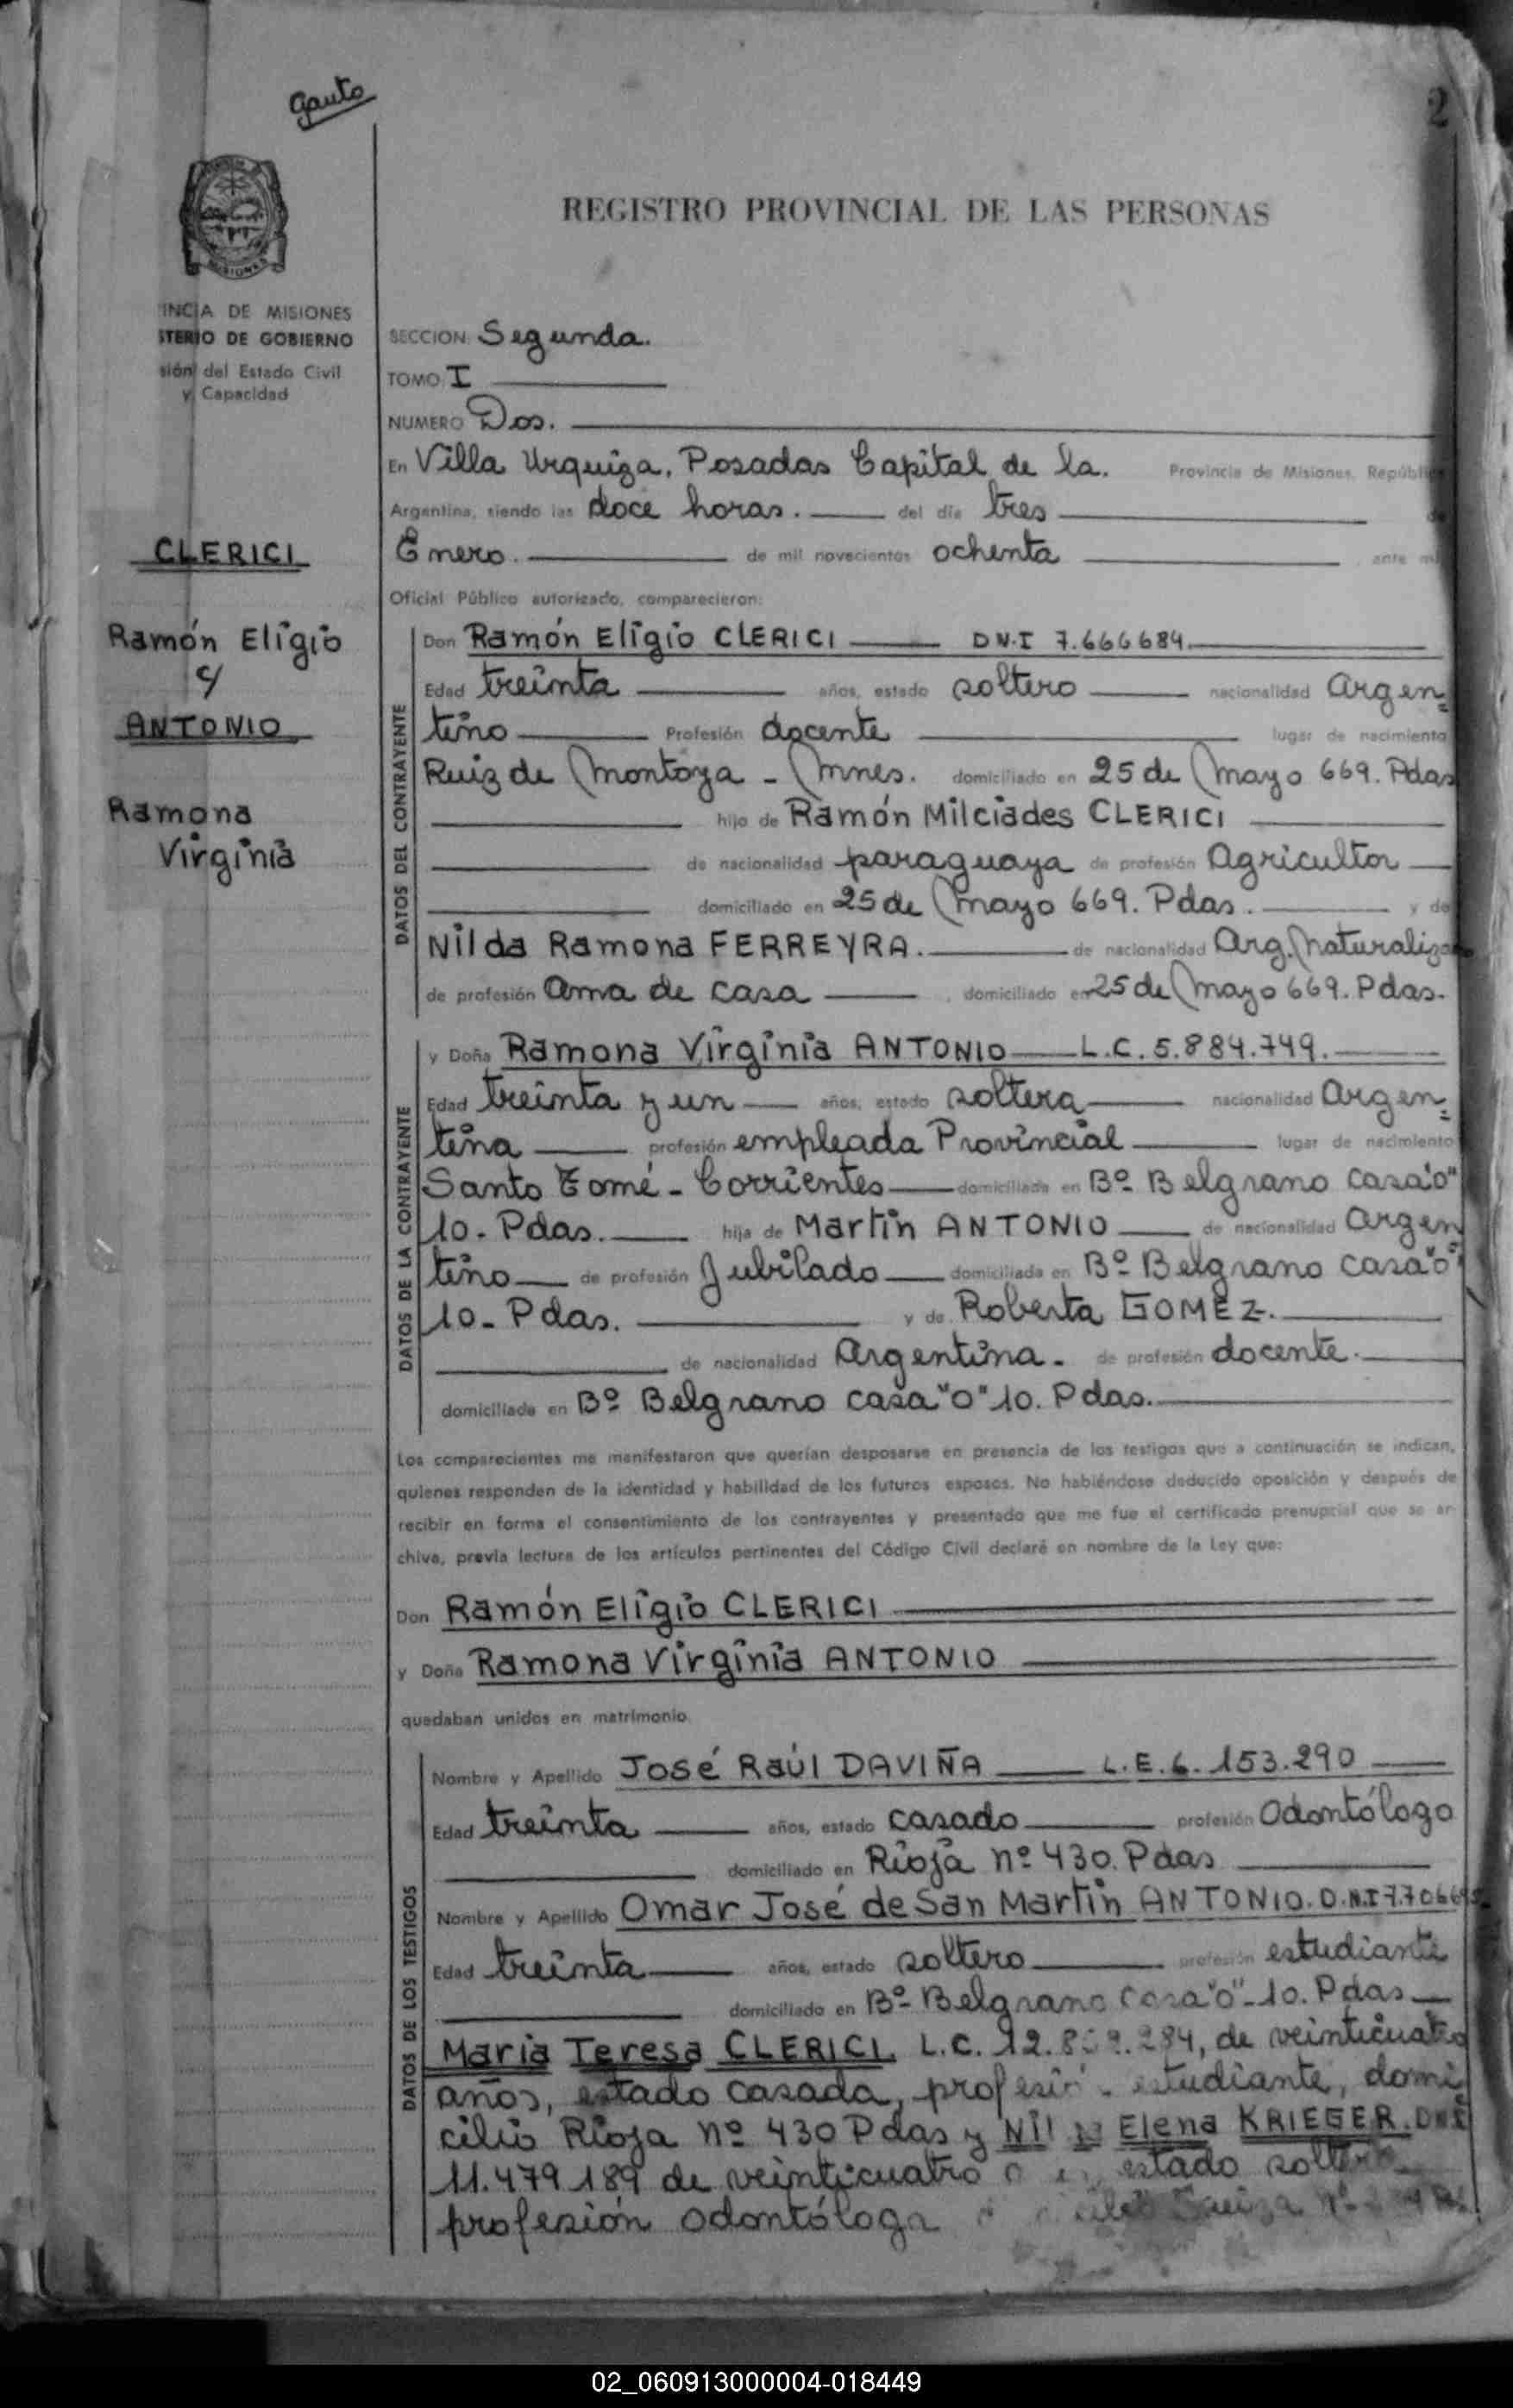 Gauto
2
REGISTRO PROVINCIAL DE LAS PERSONAS
MISIONES
INCIA DE MISIONES
STERIO DE GOBIERNO
sión del Estado Civil
y Capacidad
SECCION Segunda.
TOMO I
NUMERO Dos.
En Villa Urquiza, Posadas Capital de la. Provincia de Misiones, Repúbli
Argentina, siendo las doce horas. del día tres de
Enero. de mil novecientos ochenta ante mí
Oficial Público autorizado, comparecieron:
CLERICI
Ramón Eligio
c/
ANTONIO
Ramona
Virginia
DATOS DEL CONTRAYENTE
Don Ramón Eligio CLERICI D.N.I 7.666684.
Edad treinta años, estado soltero nacionalidad Argen=
tino Profesión docente lugar de nacimiento
Ruiz de Montoya - Mnes. domiciliado en 25 de Mayo 669. Pdas
hijo de Ramón Milciades CLERICI
de nacionalidad paraguaya de profesión Agricultor
domiciliado en 25 de Mayo 669. Pdas. y de
Nilda Ramona FERREYRA. de nacionalidad Arg. Naturaliza
de profesión Ama de casa domiciliado en 25 de Mayo 669. Pdas.
DATOS DE LA CONTRAYENTE
y Doña Ramona Virginia ANTONIO L.C. 5.884.749.
Edad treinta y un años, estado soltera nacionalidad Argen=
tina profesión empleada Provincial lugar de nacimiento
Santo Tomé - Corrientes domiciliada en Bº Belgrano casa "O"
10. Pdas. hija de Martín ANTONIO de nacionalidad Argen
tino de profesión Jubilado domiciliada en Bº Belgrano casa "O"
10- Pdas. y de Roberta GOMEZ.
de nacionalidad Argentina. de profesión docente.
domiciliada en Bº Belgrano casa "O" 10. Pdas.
Los comparecientes me manifestaron que querían desposarse en presencia de los testigos que a continuación se indican,
quienes responden de la identidad y habilidad de los futuros esposos. No habiéndose deducido oposición y después de
recibir en forma el consentimiento de los contrayentes y presentado que me fue el certificado prenupcial que se ar-
chiva, previa lectura de los artículos pertinentes del Código Civil declaré en nombre de la Ley que:
Don Ramón Eligio CLERICI
y Doña Ramona Virginia ANTONIO
quedaban unidos en matrimonio
DATOS DE LOS TESTIGOS
Nombre y Apellido José Raúl DAVIÑA L.E. 6.153.290
Edad treinta años, estado casado profesión Odontólogo
domiciliado en Rioja nº 430. Pdas
Nombre y Apellido Omar José de San Martín ANTONIO. D.N.I 7.70669
Edad treinta años, estado soltero profesión estudiante
domiciliado en Bº Belgrano casa "O" - 10. Pdas
Maria Teresa CLERICI, L.C. de veinticuatro
años, estado casada, profesión estudiante, domi
cilio Rioja nº 430 Pdas y Elena KRIEGER. DNI
11.479189 de veinticuatro estado soltera
profesión odontóloga
02_060913000004-018449